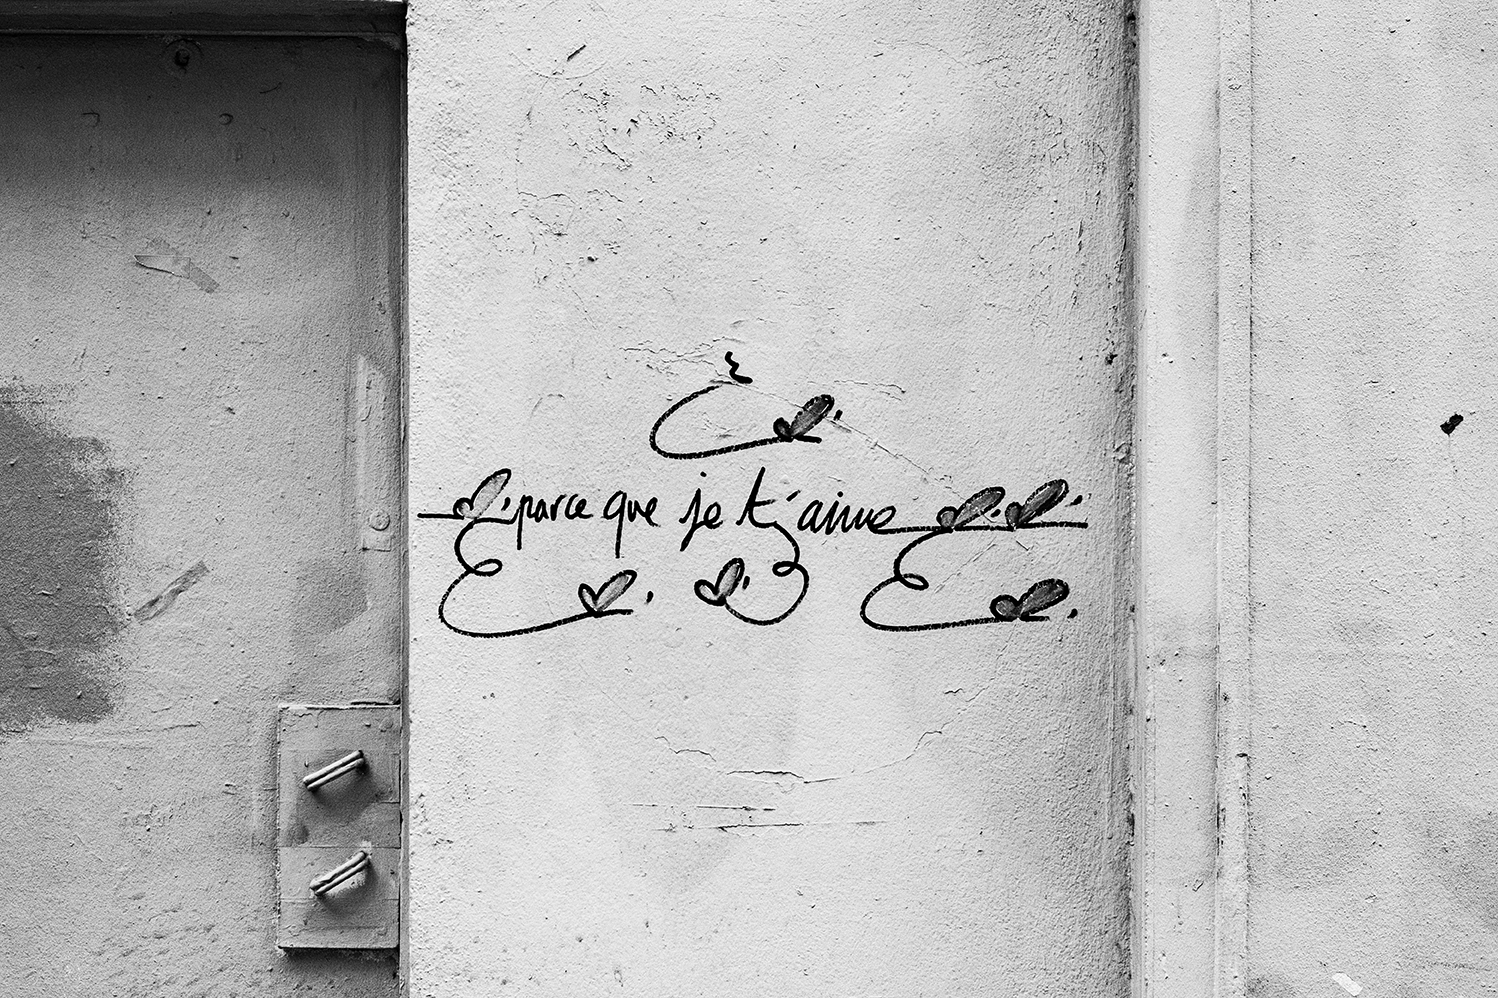 parce que je t'aime